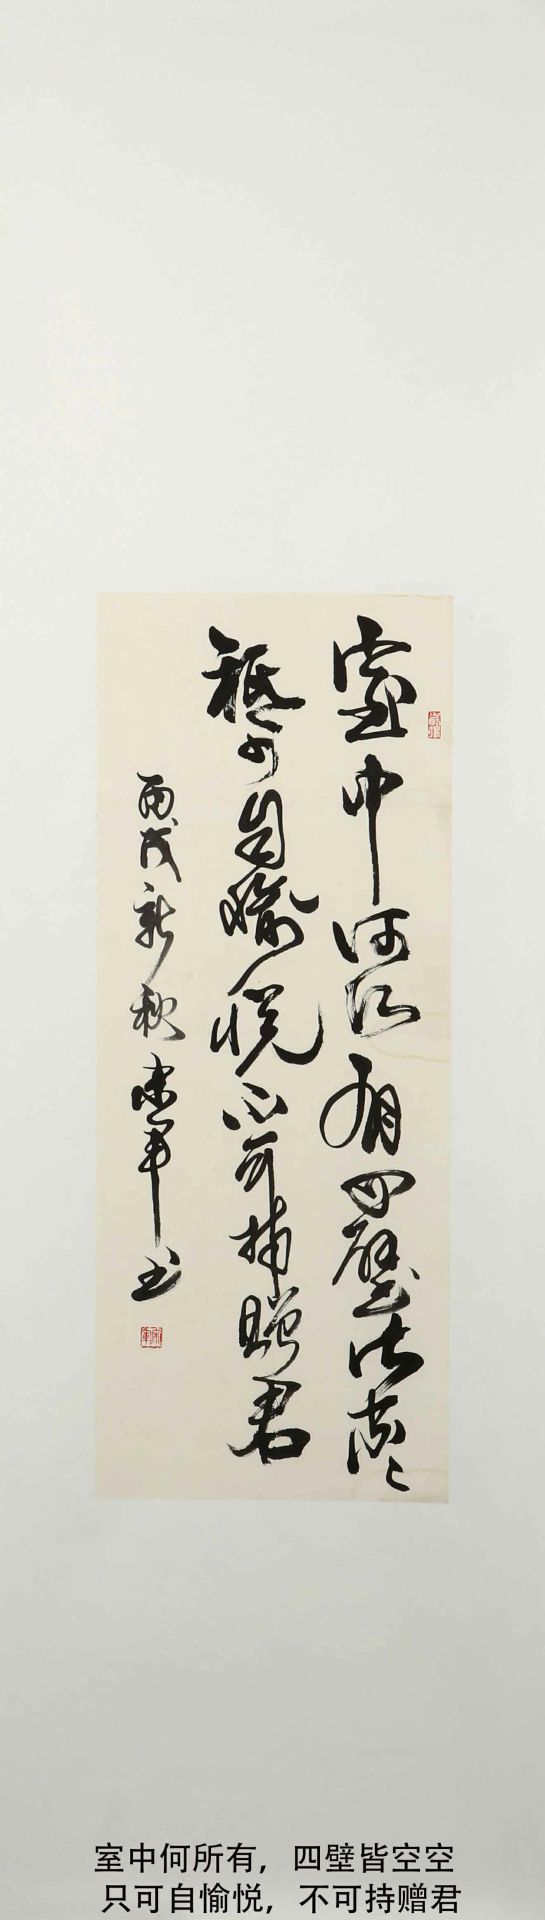 室中何所有四壁皆空〻
祗可自愉悦不可持赠君
丙戌新秋 军书
室中何所有，四壁皆空空
只可自愉悦，不可持赠君